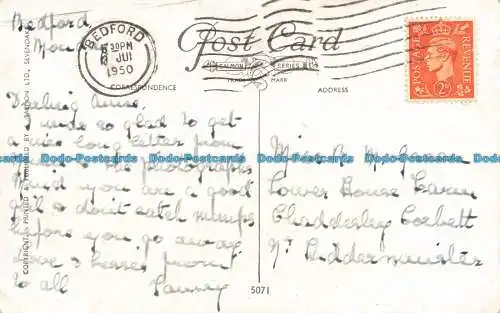 Bedford
BEDFORD
30 PM
JUL
1950
Post Card
SALMON SERIES
TRADE MARK
CORRESPONDENCE
ADDRESS
POSTAGE REVENUE
2D
Darling
so glad to get
a nice long letter from
& the photographs
Mind you are a good
girl & don't catch mumps
before you go away
love & kisses from
to all
Miss B. M.
Lower House Farm
Chaddesley Corbett
Nr Kidderminster
Dodo-Postcards Dodo-Postcards Dodo-Postcards Dodo-Postcards
Dodo-Postcards Dodo-Postcards Dodo-Postcards Dodo-Postcards
COPYRIGHT PRINTED & PUBLISHED BY J. SALMON LTD., SEVENOAKS
5071